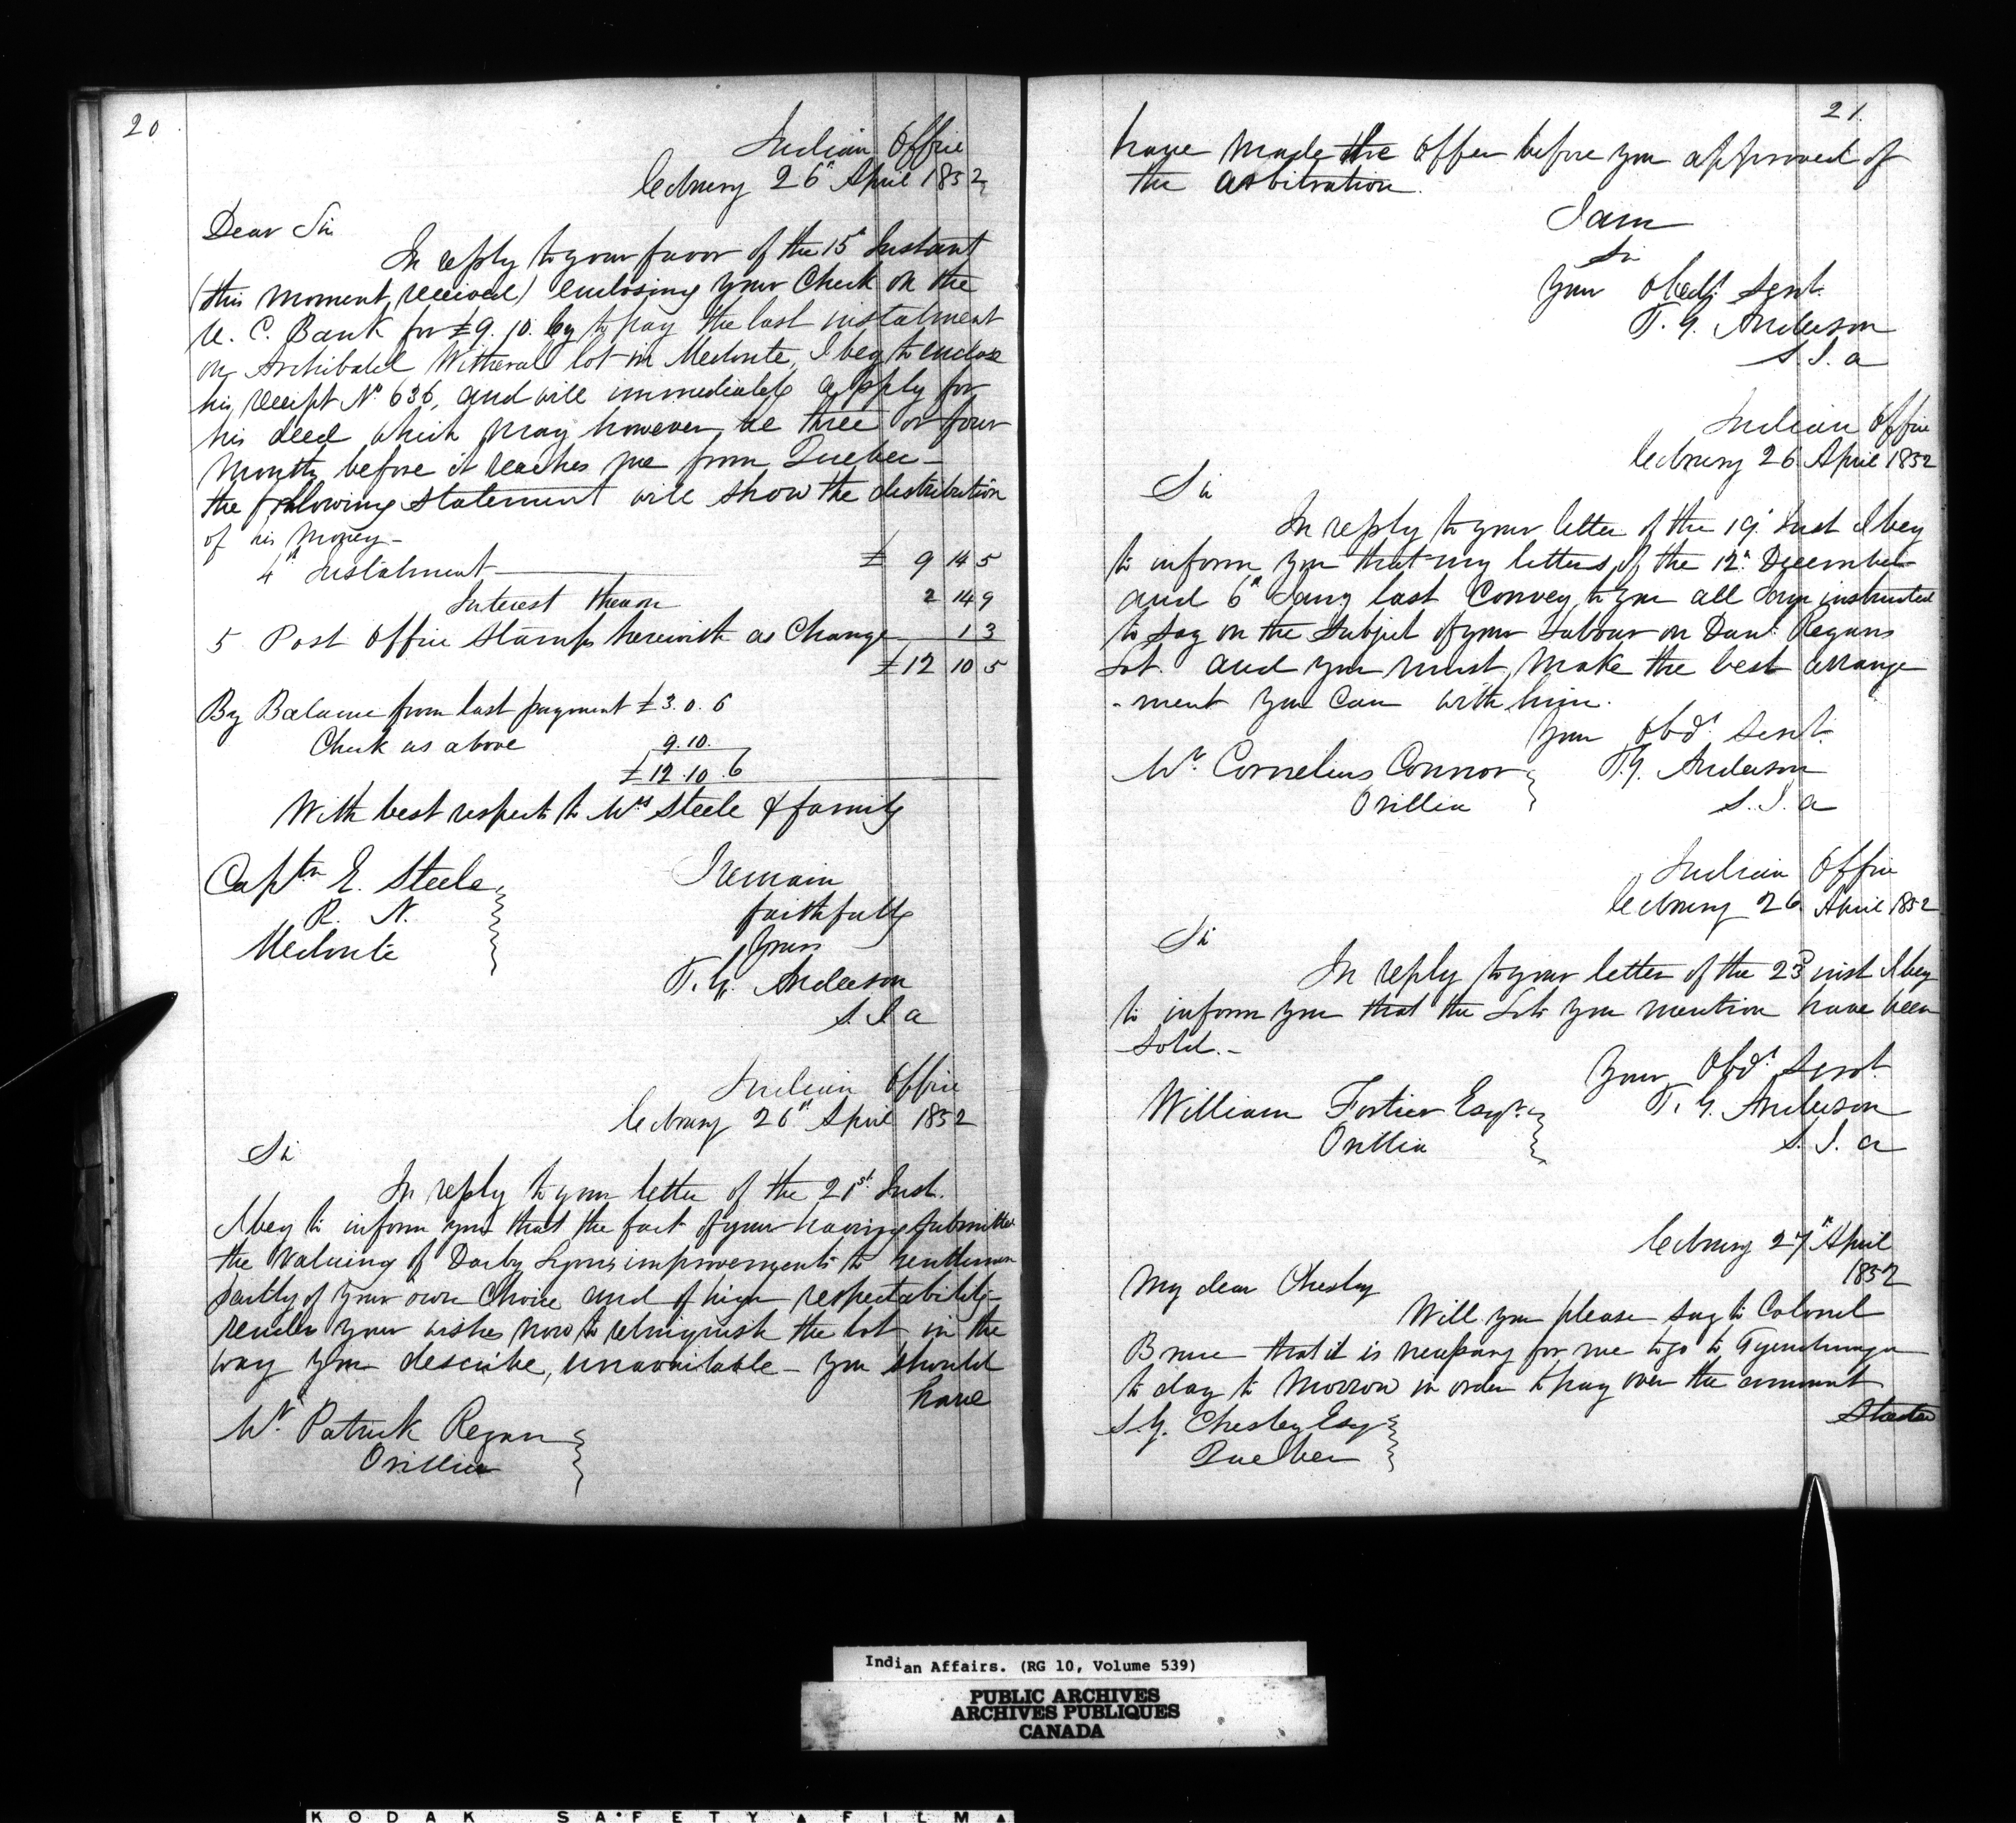 20
Indian Office
Cobourg 26th April 1852
Dear Sir
In reply to your favor of the 15th Instant
(this moment received) enclosing your Check on the
U. C. Bank for £9. 10. to pay the last instalment
on Archibald Witheral lot in Medonte, I beg to enclose
his receipt No 636, and will immediately apply for
his deed which may however be three or four
months before it reaches me from Quebec -
the following statement will show the distribution
of his Money -
4th Instalment £ 9 14 5
Interest thereon 2 14 9
5 Post Office Stamps herewith as Change 1 3
£12 10 5
By Balance from last payment £3. 0. 6
Check as above 9.10.
£12.10.6
With best respects to Mrs Steele & family
I remain
faithfully
Yours
T. G. Anderson
S. I. a
Captn E. Steele
R. N.
Medonte
Indian Office
Cobourg 26th April 1852
Sir
In reply to your letter of the 21st Inst.
I beg to inform you that the fact of your having submitted
the valuing of Darby Lyons improvements to Gentlemen
partly of your own Choice and of high respectability -
renders your wishes now to relinquish the lot in the
way you describe, unavailable - You should
have
Mr Patrick Regan
Orillia
21.
have made the offer before you approved of
the arbitration.
I am
Sir
Your Obedt Servt.
T. G. Anderson
S. I. a
Indian Office
Cobourg 26 April 1852
Sir
In reply to your letter of the 19th Inst I beg
to inform you that my letters of the 12th December
and 6th Jany last Convey to you all I am instructed
to say on the Subject of your Labour on Danl Regans
Lot. and you must make the best arrange
-ment you Can with him.
Your Obdt Servt.
T. G. Anderson
S. I. a
Mr Cornelius Connor
Orillia
Indian Office
Cobourg 26 April 1852
Sir
In reply to your letter of the 23d inst I beg
to inform you that the Lots you mention have been
Sold. -
Your Obdt Servt.
T. G. Anderson
S. I. a
William Fortier Esqr.
Orillia
Cobourg 27th April
1852
My dear Chesley
Will you please say to Colonel
Bruce that it is necessary for me to go to Tyendinaga
to day to Morrow in order to pay over the amount
S. Y. Chesley Esq
Quebec
Indian Affairs. (RG 10, Volume 539)
PUBLIC ARCHIVES
ARCHIVES PUBLIQUES
CANADA
KODAK SAFETY FILM